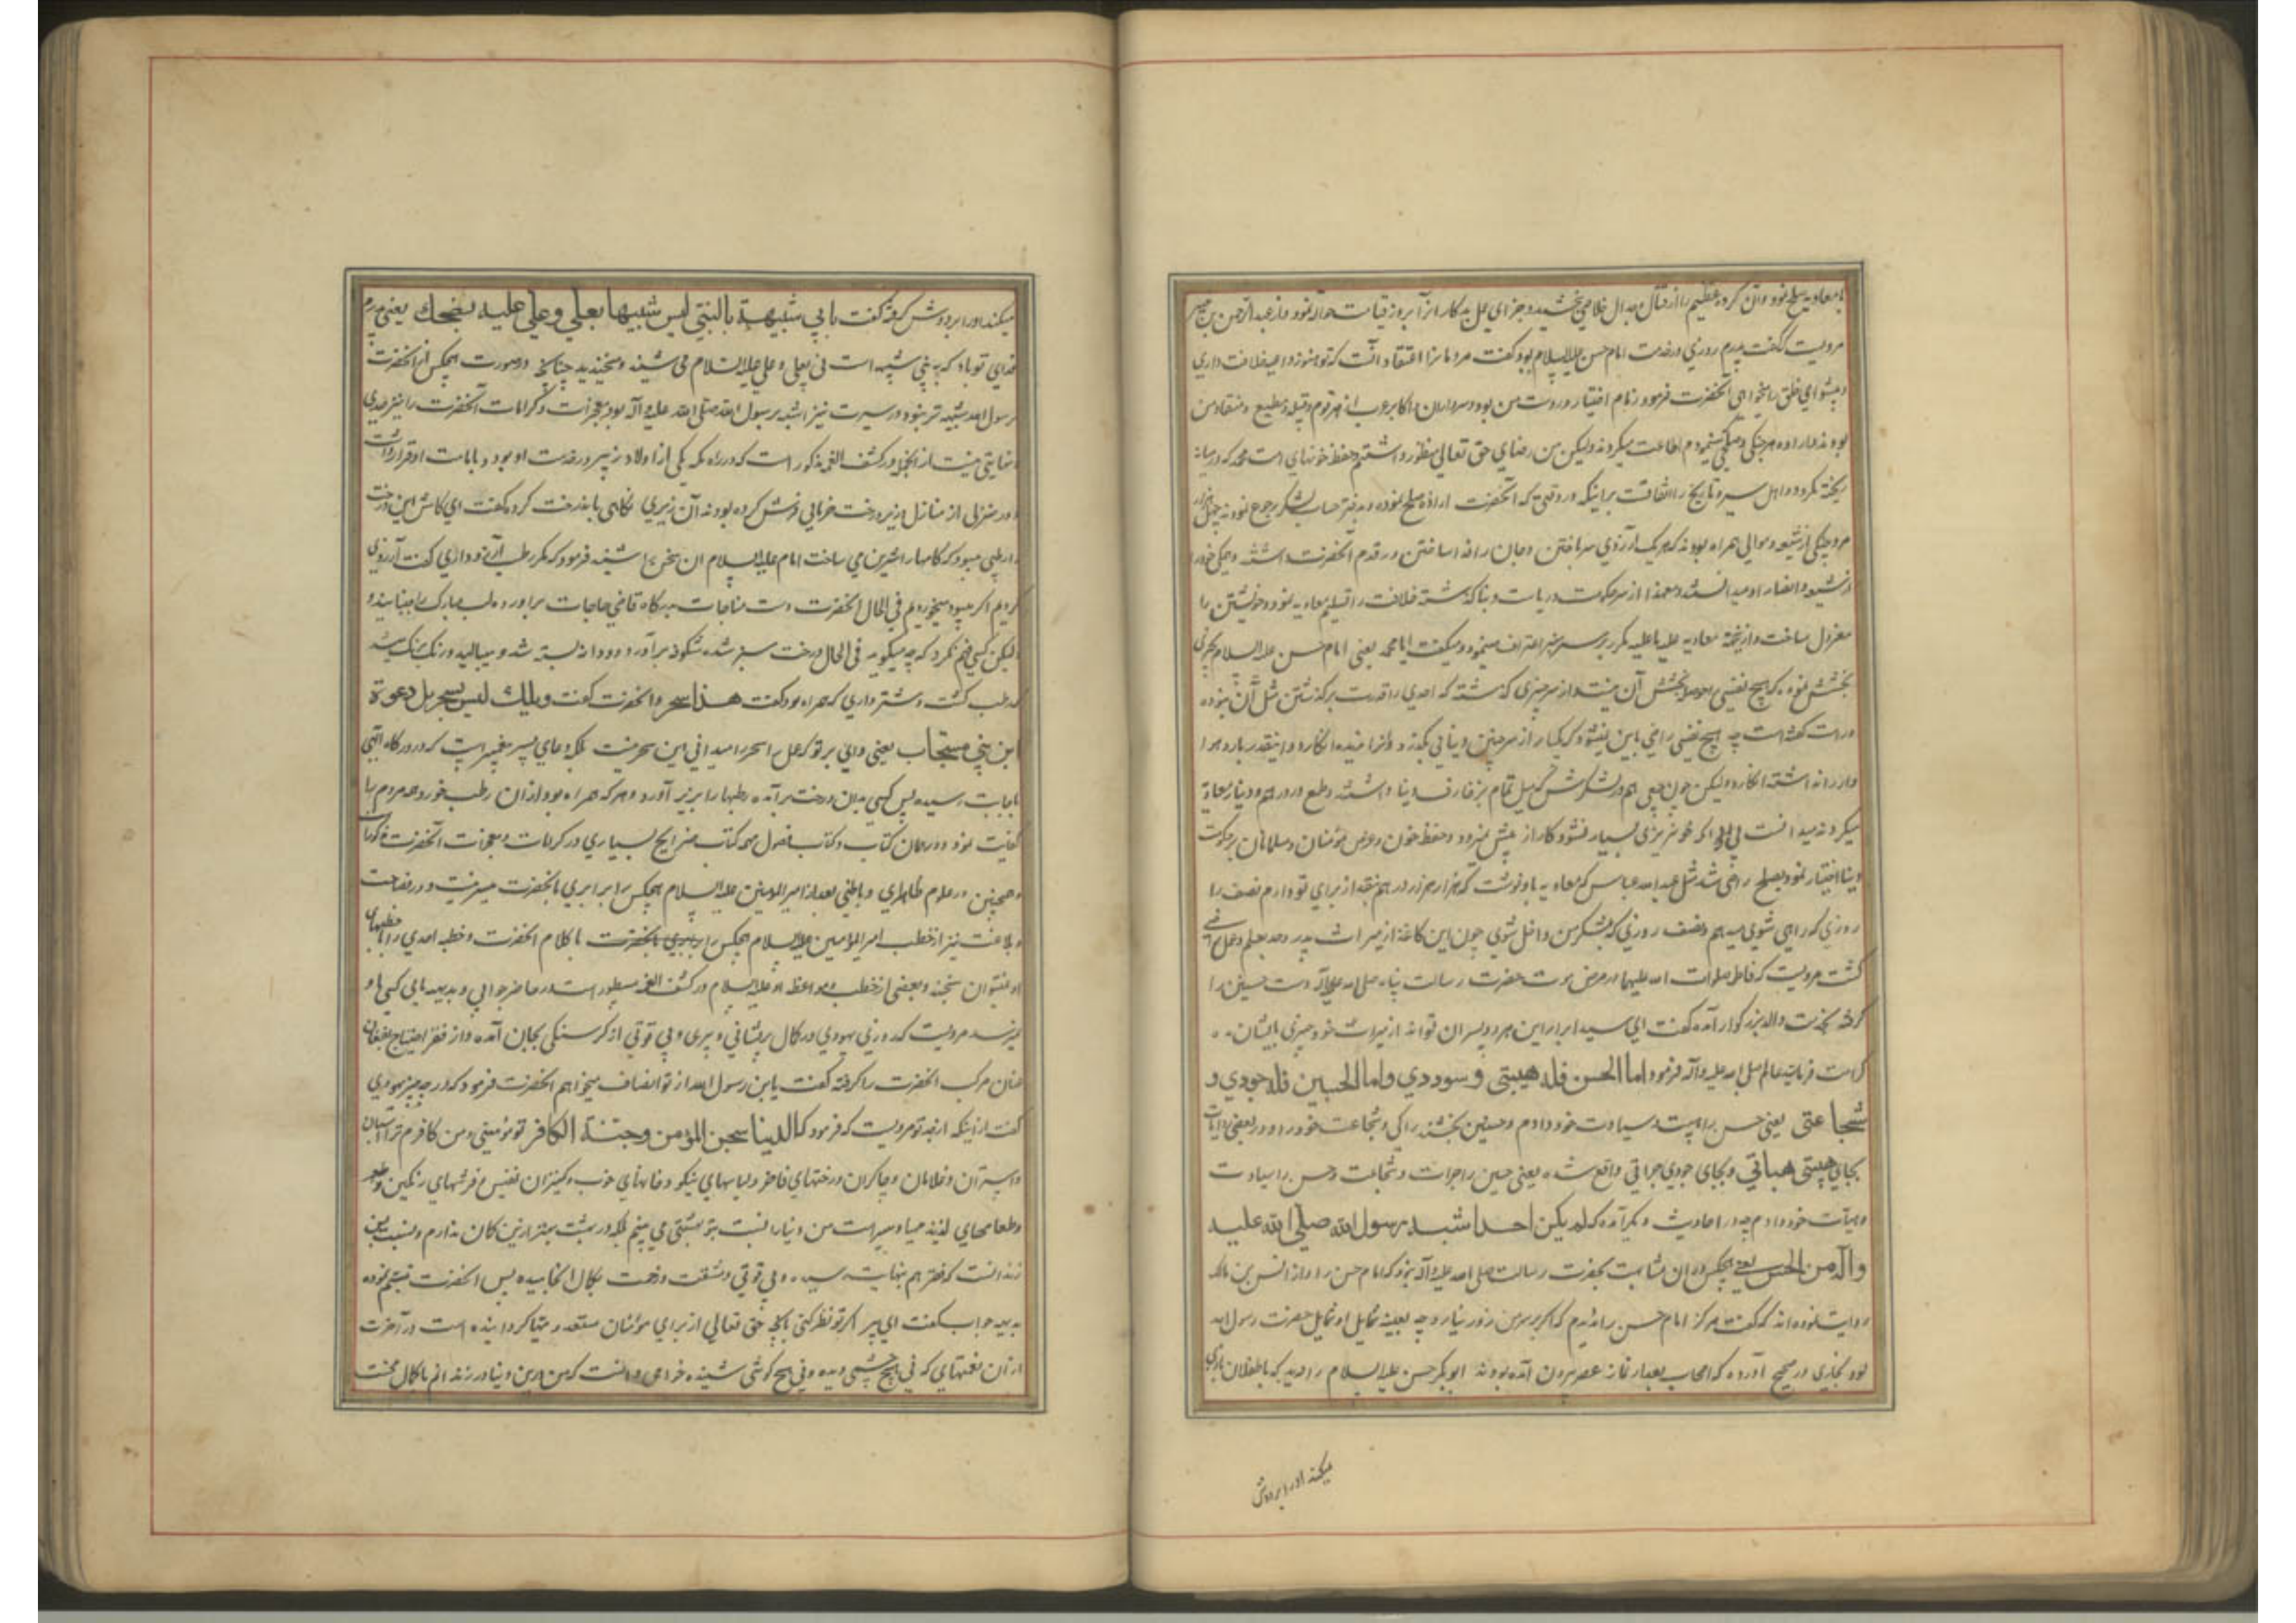 با معاویه صلح نمود وآن کروه عظیم را از قتال وجدال خلاصی بخشید وجزای عمل بدکار انرا بروز قیامت حواله نمود واز عبدالرحمن بن جبیر
مرویست که گفت پدرم روزی در خدمت امام حسن علیه السلام بود گفت مردمانرا اعتقاد آنست که تو هنوز داعیه خلافت داری
وپیشوای خلق را میخواهی آنحضرت فرمود زمام اختیار در دست من بود وسرداران واکابر عرب از هر قوم وقبیله مطیع ومنقاد من
بودند اراده هر جنکی وصلحی مینمودم اطاعت میکردند ولیکن من رضای حق تعالی منظور داشتم وحفظ خونهای امت محمد که در میانه
ریخته نکردد واهل سیر وتاریخ را اتفاقست براینکه در وقتی که آنحضرت اراده صلح نموده بدفتر حساب لشکر رجوع نمودند چهل هزار
مرد جنکی از شیعه وموالی همراه بودند که هر یک آرزوی سر باختن وجان را فدا ساختن در قدم آنحضرت داشتند وهمکی خود را
از شیعه وانصار او میدانستند ومعهذا از سر حکومت وریاست دنیا گذشته خلافت را تسلیم معاویه نمود وخویشتن را
معزول ساخت واز نجمه معاویه علیه ما علیه مکرر بر سر منبر اعتراف مینمود ومیگفت ابا محمد یعنی امام حسن علیه السلام بچیزی
بخشش نموده که هیچ نفسی را حوصله بخشش آن نیست واز سر چیزی گذشته که احدی را قدرت برگذشتن مثل آن نبوده
وراست گفته است چه هیچ نفسی راضی باین نمیشود که یکبار از سر چنین دنیائی بگذرد وآنرا ندیده انکارد واینقدر بار در هوا
واز راه داشته انکارد ولیکن چون اهم در لشکرش میل تمام بزخارف دنیا داشتند وطمع در درهم ودینار معاویة
میکردند میدانست که اکر خونریزی بسیار نشود کار از پیش نمیرود وحفظ خون وعرض مؤمنان ومسلمانان بر حکومت
دنیا اختیار نمود بصلح راضی شد مثل عبدالله عباس که معاویه باو نوشت که هزار هزار درهم نقد از برای تو دارم نصف را
روزی که راهی شوی میدهم ونصف روزی که بلشکر من داخل شوی چون این کاغذ از میراث پدر وجد بعلم وحلم راضی
گشت مرویست که فاطمه صلوات الله علیها در مرض موت حضرت رسالت پناه صلی الله علیه وآله دست حسنین را
گرفته بخدمت والد بزرکوار آمده گفت ای سید ابرار این هر دو پسران تواند از میراث خود چیزی بایشان ده
کرامت فرمای عالم صلی الله علیه وآله فرمود اما الحسن فله هیبتی وسوددی واما الحسین فله جودی و
شجاعتی یعنی حسن را هیبت وسیادت خود دادم وحسین بخشندگی وشجاعت خود را ودر بعضی روایات
بجای هیبتی هیاتی وبجای جودی جراتی واقع شده یعنی حسین را جرات وشجاعت وحسن را سیادت
وهیأت خود دادم چه در احادیث دیگر آمده که لم یکن احدا شبه برسول الله صلی الله علیه
وآله من الحسن یعنی هیچکس در آن مشابهت بحضرت رسالت صلی الله علیه وآله نبود که امام حسن را واز انس بن مالک
روایت نموده اند که گفت هرکز امام حسن را ندیدم که اکر بر من زور نیارد چه بعینه شمایل او شمایل حضرت رسول الله
بود بخاری در صحیح آورده که اصحاب بعد از نماز عصر بیرون آمده بودند ابو بکر حسن علیه السلام را دید که با طفلان بازی
میکند اورا بردوش
میکند اورا بر دوش گرفته گفت بابی شبیهة بالنبی لیس شبیها بعلی وعلی علیه یضحک یعنی پدرم
فدای تو باد که به نبی شبیه است نی بعلی وعلی علیه السلام می شنید ومیخندید چنانکه در صورت هیچکس از آنحضرت
برسول الله شبیه تر نبود در سیرت نیز اشبه برسول الله صلی الله علیه وآله بود ومعجزات وکرامات آنحضرت را نیز حدی
ونهایتی نیست از آنجمله در کشف الغمه مذکور است که در راه مکه یکی از اولاد زبیر در خدمت او بود وبامامت او قرار داشت
ودر منزلی از منازل در زیر درخت خرمائی فرش کرده بودند آن زبیری نکاهی بان درخت کرد گفت ای کاش این درخت
را رطبی میبود که کامها را شیرین می ساخت امام علیه السلام آن سخن را شنید فرمود که مگر رطب آرزو داری گفت آرزوی
کردیم اکر میبود میخوردیم فی الحال آنحضرت دست مناجات بدرکاه قاضی حاجات برآورده لب مبارک را جنبانید و
لیکن کسی فهم نکرد که چه میگوید فی الحال درخت سبز شده شکوفه برآورد ودانه بسته شد ومیبالید ورنک برنک میشد
که رطب گشت وشترداری که همراه بود گفت هذا سحر وآنحضرت گفت ویلک لیس بسحر بل دعوة
ابن نبی مستجاب یعنی وای بر تو که عمل سحر را میدانی این سحر نیست بلکه دعای پسر پیغمبر است که در درکاه الهی
باجابت رسیده پس کسی بدان درخت برآمد ورطبها را بزیر آورد وهر که همراه بود از ان رطب خورد وهمه مردم را
کفایت نمود ودر همان کتاب وکتاب فصول مهمه کتاب خرایج بسیاری در کرامات ومعجزات آنحضرت مذکور است
وهمچنین در علوم ظاهری وباطنی بعد از امیر المؤمنین علیه السلام هیچکس را برابری بانحضرت میسر نیست ودر فصاحت
وبلاغت نیز از خطب امیر المؤمنین علیه السلام هیچکس را برابری بآنحضرت با کلام آنحضرت وخطبه احدی را با خطبهای
او نتوان سنجید وبعضی از خطب ومواعظ او علیه السلام در کشف الغمه مسطور است در حاضر جوابی وبدیهه بآبی کسی باو
نمیرسد مرویست که روزی یهودی در کمال پریشانی وپیری وبی قوتی از گرسنکی بجان آمده واز فقر واحتیاج بافغان
عنان مرکب آنحضرت را گرفته گفت یابن رسول الله از تو انصاف میخواهم آنحضرت فرمود که در چه چیز یهودی
گفت از اینکه از جد تو مرویست که فرمود که الدنیا سجن المؤمن وجنة الکافر تو مؤمنی ومن کافرم ترا اسبان
واستران وغلامان وچاکران ورختهای فاخر ولباسهای نیکو وخانهای خوب وکنیزان نفیس وفرشهای رنکین
وطعامهای لذیذ مهیا ومیسر است من دنیا را نسبت بتو بهشتی می بینم بلکه در بهشت بهتر از این گمان ندارم ونسبت بمن
زندانست که فقرم بنهایت رسیده وبی قوتی ومشقت وزحمت بکمال انجامیده پس آنحضرت تبسم نموده
بدیهه جواب گفت ای پیر اکر تو نظر کنی بآنچه حق تعالی از برای مؤمنان مستعد ومهیا گردانیده است در آخرت
از آن نعمتهای که نی هیچ چشمی دیده ونی هیچ گوشی شنیده خواهی دانست که من درین دنیا در زندانم با کمال محنت